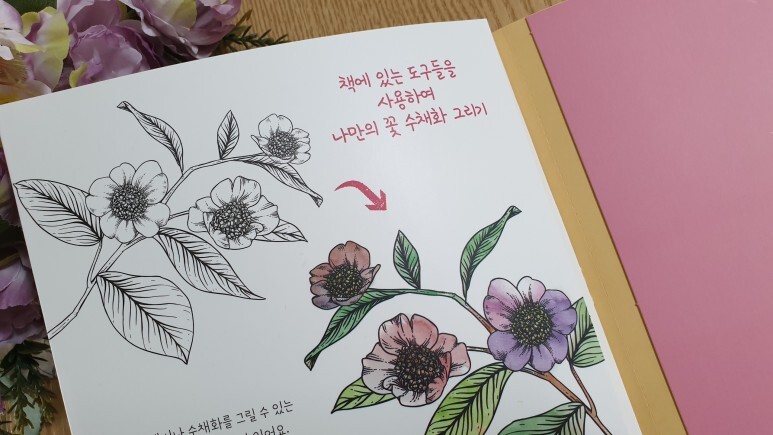 책에 있는 도구들을
사용하여
나만의 꽃 수채화 그리기
수채화를 그릴 수 있는